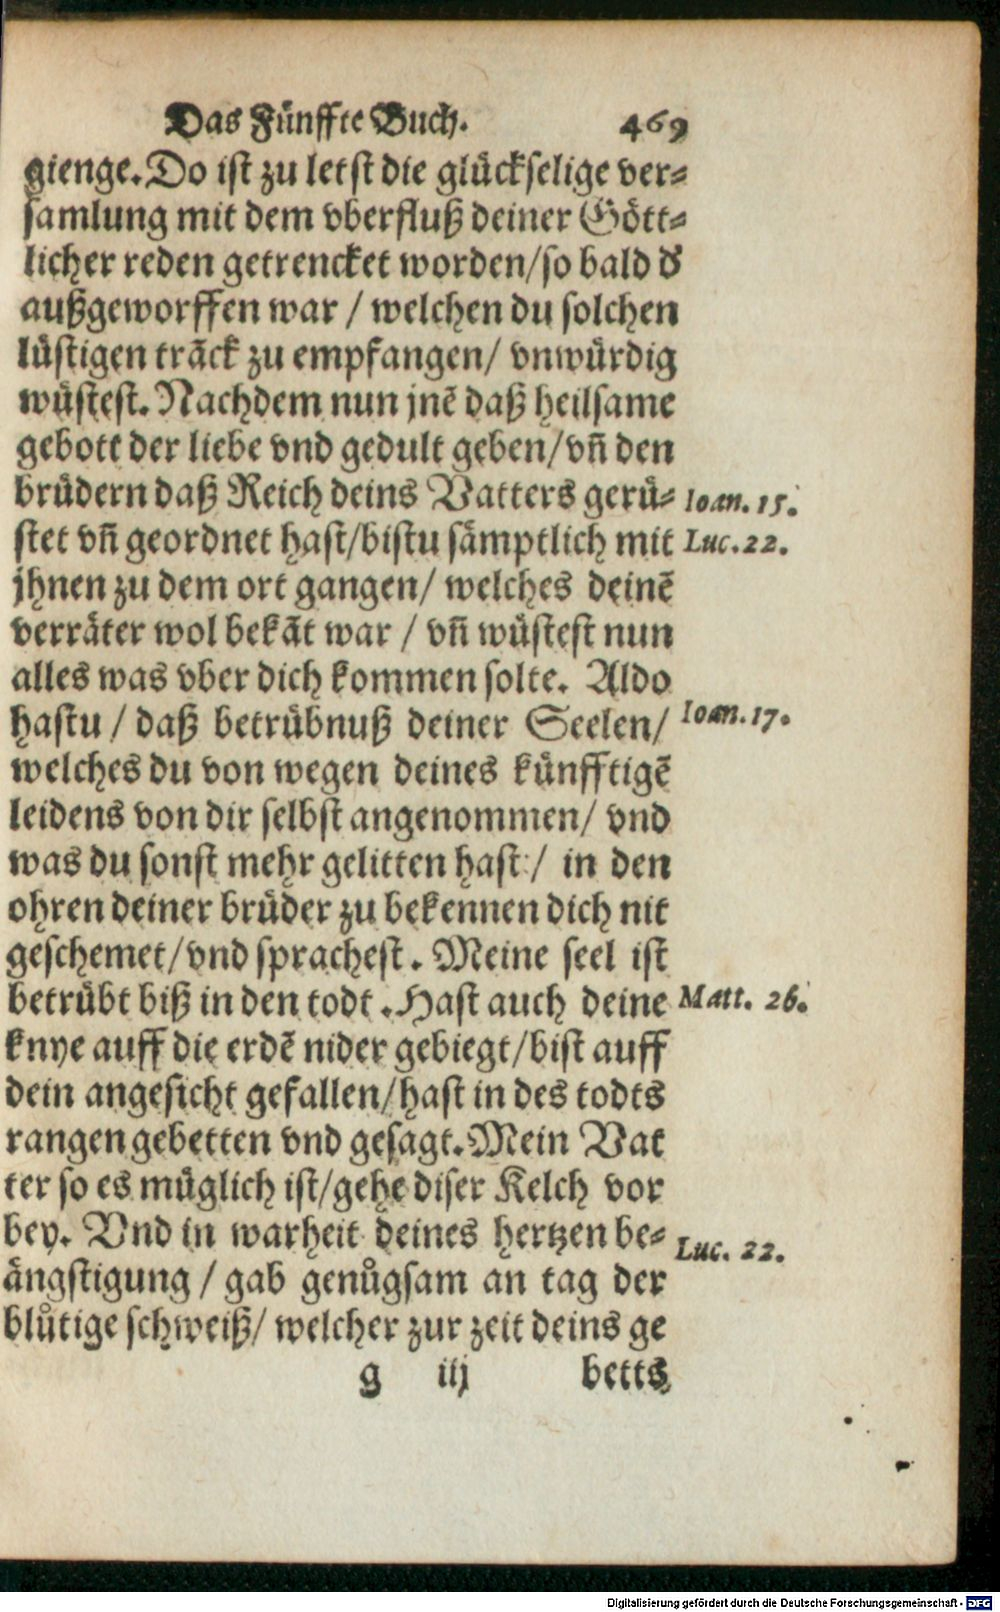 Das Fünffte Buch. 469
gienge. Do ist zu letst die glückselige ver⸗
samlung mit dem vberfluß deiner Gött⸗
licher reden getrencket worden/so bald d'
außgeworffen war / welchen du solchen
lüstigen trāck zu empfangen/ vnwürdig
wüstest. Nachdem nun jnē daß heilsame
gebott der liebe vnd gedult geben/vn̄ den
brüdern daß Reich deins Vatters gerü⸗ Ioan. 15.
stet vn̄ geordnet hast/bistu sämptlich mit Luc. 22.
jhnen zu dem ort gangen/ welches deinē
verräter wol bekāt war / vn̄ wüstest nun
alles was vber dich kommen solte. Aldo
hastu / daß betrübnuß deiner Seelen/ Ioan. 17.
welches du von wegen deines künfftigē
leidens von dir selbst angenommen/ vnd
was du sonst mehr gelitten hast / in den
ohren deiner brüder zu bekennen dich nit
geschemet/vnd sprachest. Meine seel ist
betrübt biß in den todt. Hast auch deine Matt. 26.
knye auff die erdē nider gebiegt/bist auff
dein angesicht gefallen/hast in des todts
rangen gebetten vnd gesagt. Mein Vat
ter so es müglich ist/gehe diser Kelch vor
bey. Vnd in warheit deines hertzen be⸗ Luc. 22.
ängstigung / gab genůgsam an tag der
blůtige schweiß/ welcher zur zeit deins ge
g iij betts
Digitalisierung gefördert durch die Deutsche Forschungsgemeinschaft - DFG